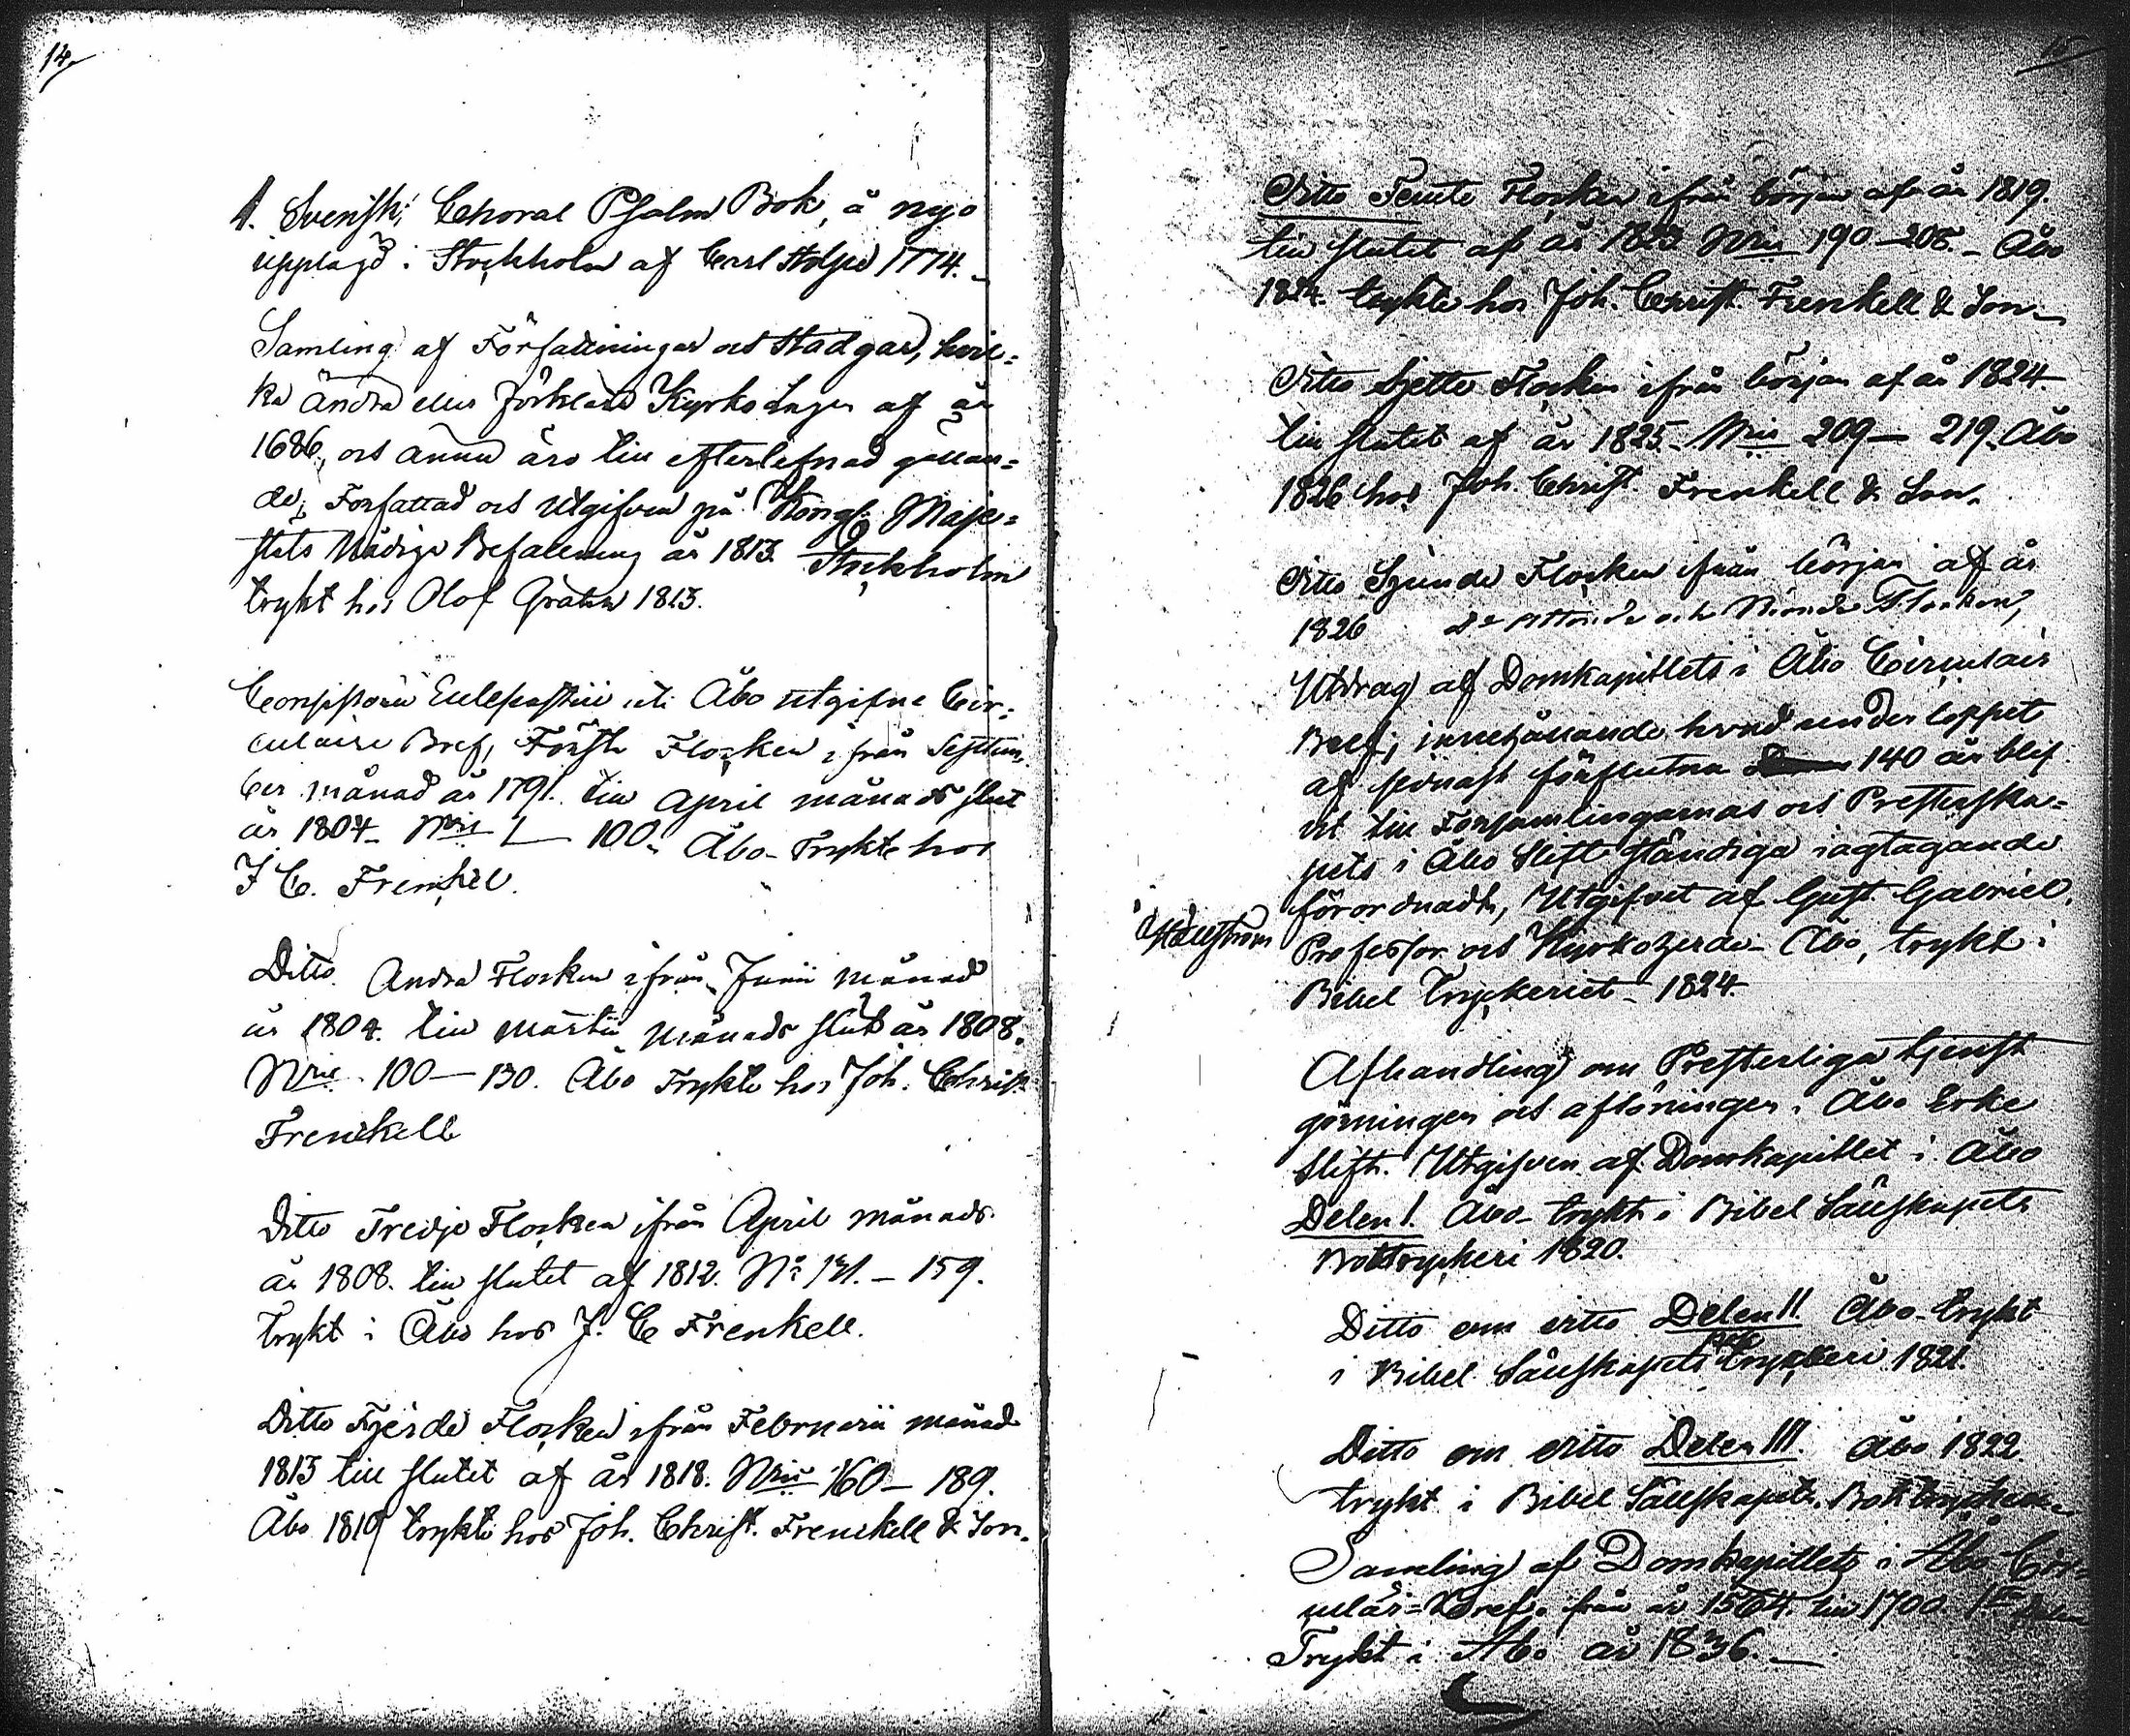 14.
1. Svensk Choral Psalm Bok, å nyo
upplagd i Stockholm af Carl Stolpe 1774.
Samling af Författningar och Stadgar, hvil=
ka ändra eller förklara Kyrko Lagen af år
1686, och ännu äro till efterlefnad gällan=
de; Författad och Utgifven på Kongl. Maje=
stäts Nådiga Befallning år 1813. Stockholm
trykt hos Olof Grahn 1813.
Consistorii Ecclesiastici uti Åbo utgifne Cir=
culaire Bref, Första Flocken ifrån Septem
ber månad år 1791. till April månads slut
år 1804. Nris 1–100. Åbo Trykte hos
J C. Frenkel.
Ditto. Andra Flocken ifrån Junii månad
år 1804. till Martii månads slut år 1808.
Nris 100–130. Åbo Trykte hos Joh. Christ.
Frenckell
Ditto Tredje Flocken ifrån April månads
år 1808. till slutet af 1812. No 131.–159.
trykt i Åbo hos J. C Frenkell.
Ditto Fjerde Flocken ifrån Februarii månad
1813 till slutet af år 1818. Nris 160–189.
Åbo 1819 trykte hos Joh. Christ. Frenckell & Son.
15
Ditto Femte Flocken ifrån början af år 1819.
till slutet af år 1823 Nris 190–208.– Åbo
1824. trykte hos Joh. Christ. Frenkell & Son
Ditto Sjette Flocken ifrån början af år 1824
till slutet af år 1825.– Nris 209–219. Åbo
1826 hos Joh. Christ. Frenkell & Son.
Ditto Sjunde Flocken ifrån början af år
1826 Do Åttonde och Nionde Flocken,
Utdrag af Domkapitlets i Åbo Circulair
Bref, innehållande hvad under loppet
af sednast förflutna 140 år blif
vit till Församlingarnas och Presterska=
pets i Åbo Stift ständiga iagttagande
förordnadt, Utgifvet af Gust. Gabriel
Hällström
Professor och Kyrkoherde– Åbo, trykt i
Bibel Tryckeriet– 1824.
Afhandling om Presterliga tjenst
göringen och aflöningen i Åbo Erke
Stift. Utgifven af Domkapitlet i Åbo
Delen I. Åbo– trykt i Bibel Sällskapets
Boktryckeri 1820.
Ditto om ditto Delen II. Åbo– trykt
i Bibel Sällskapets Boktryckeri 1821.
Ditto om ditto Delen III. Åbo 1822.
trykt i Bibel Sällskapets Boktryckeri
Samling af Domkapitlets i Åbo Cir=
culär=Bref. från år 1564. till 1700. 1a Delen
Trykt i Åbo år 1836.